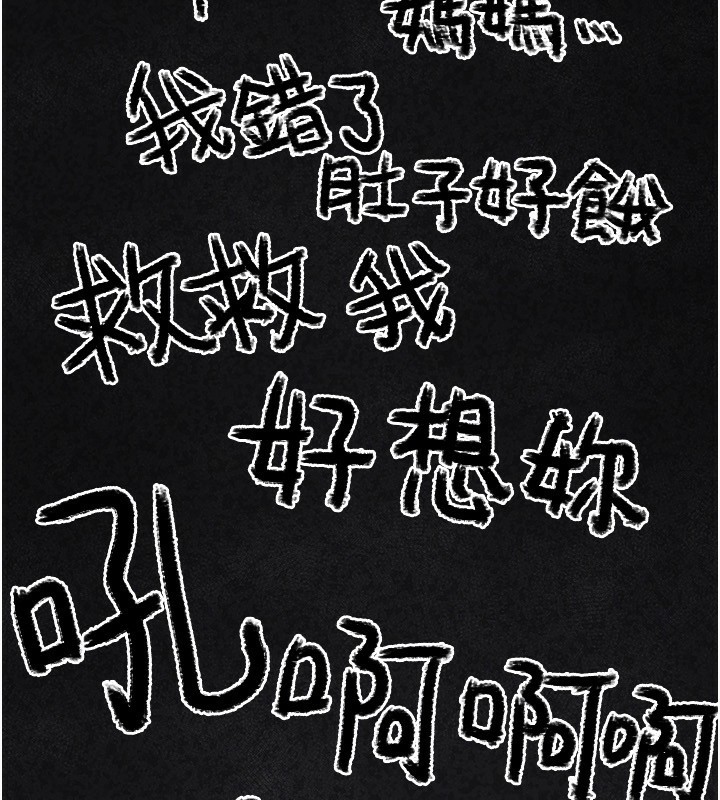 媽媽…
我錯了
肚子好餓
救救我
好想妳
吼啊啊啊